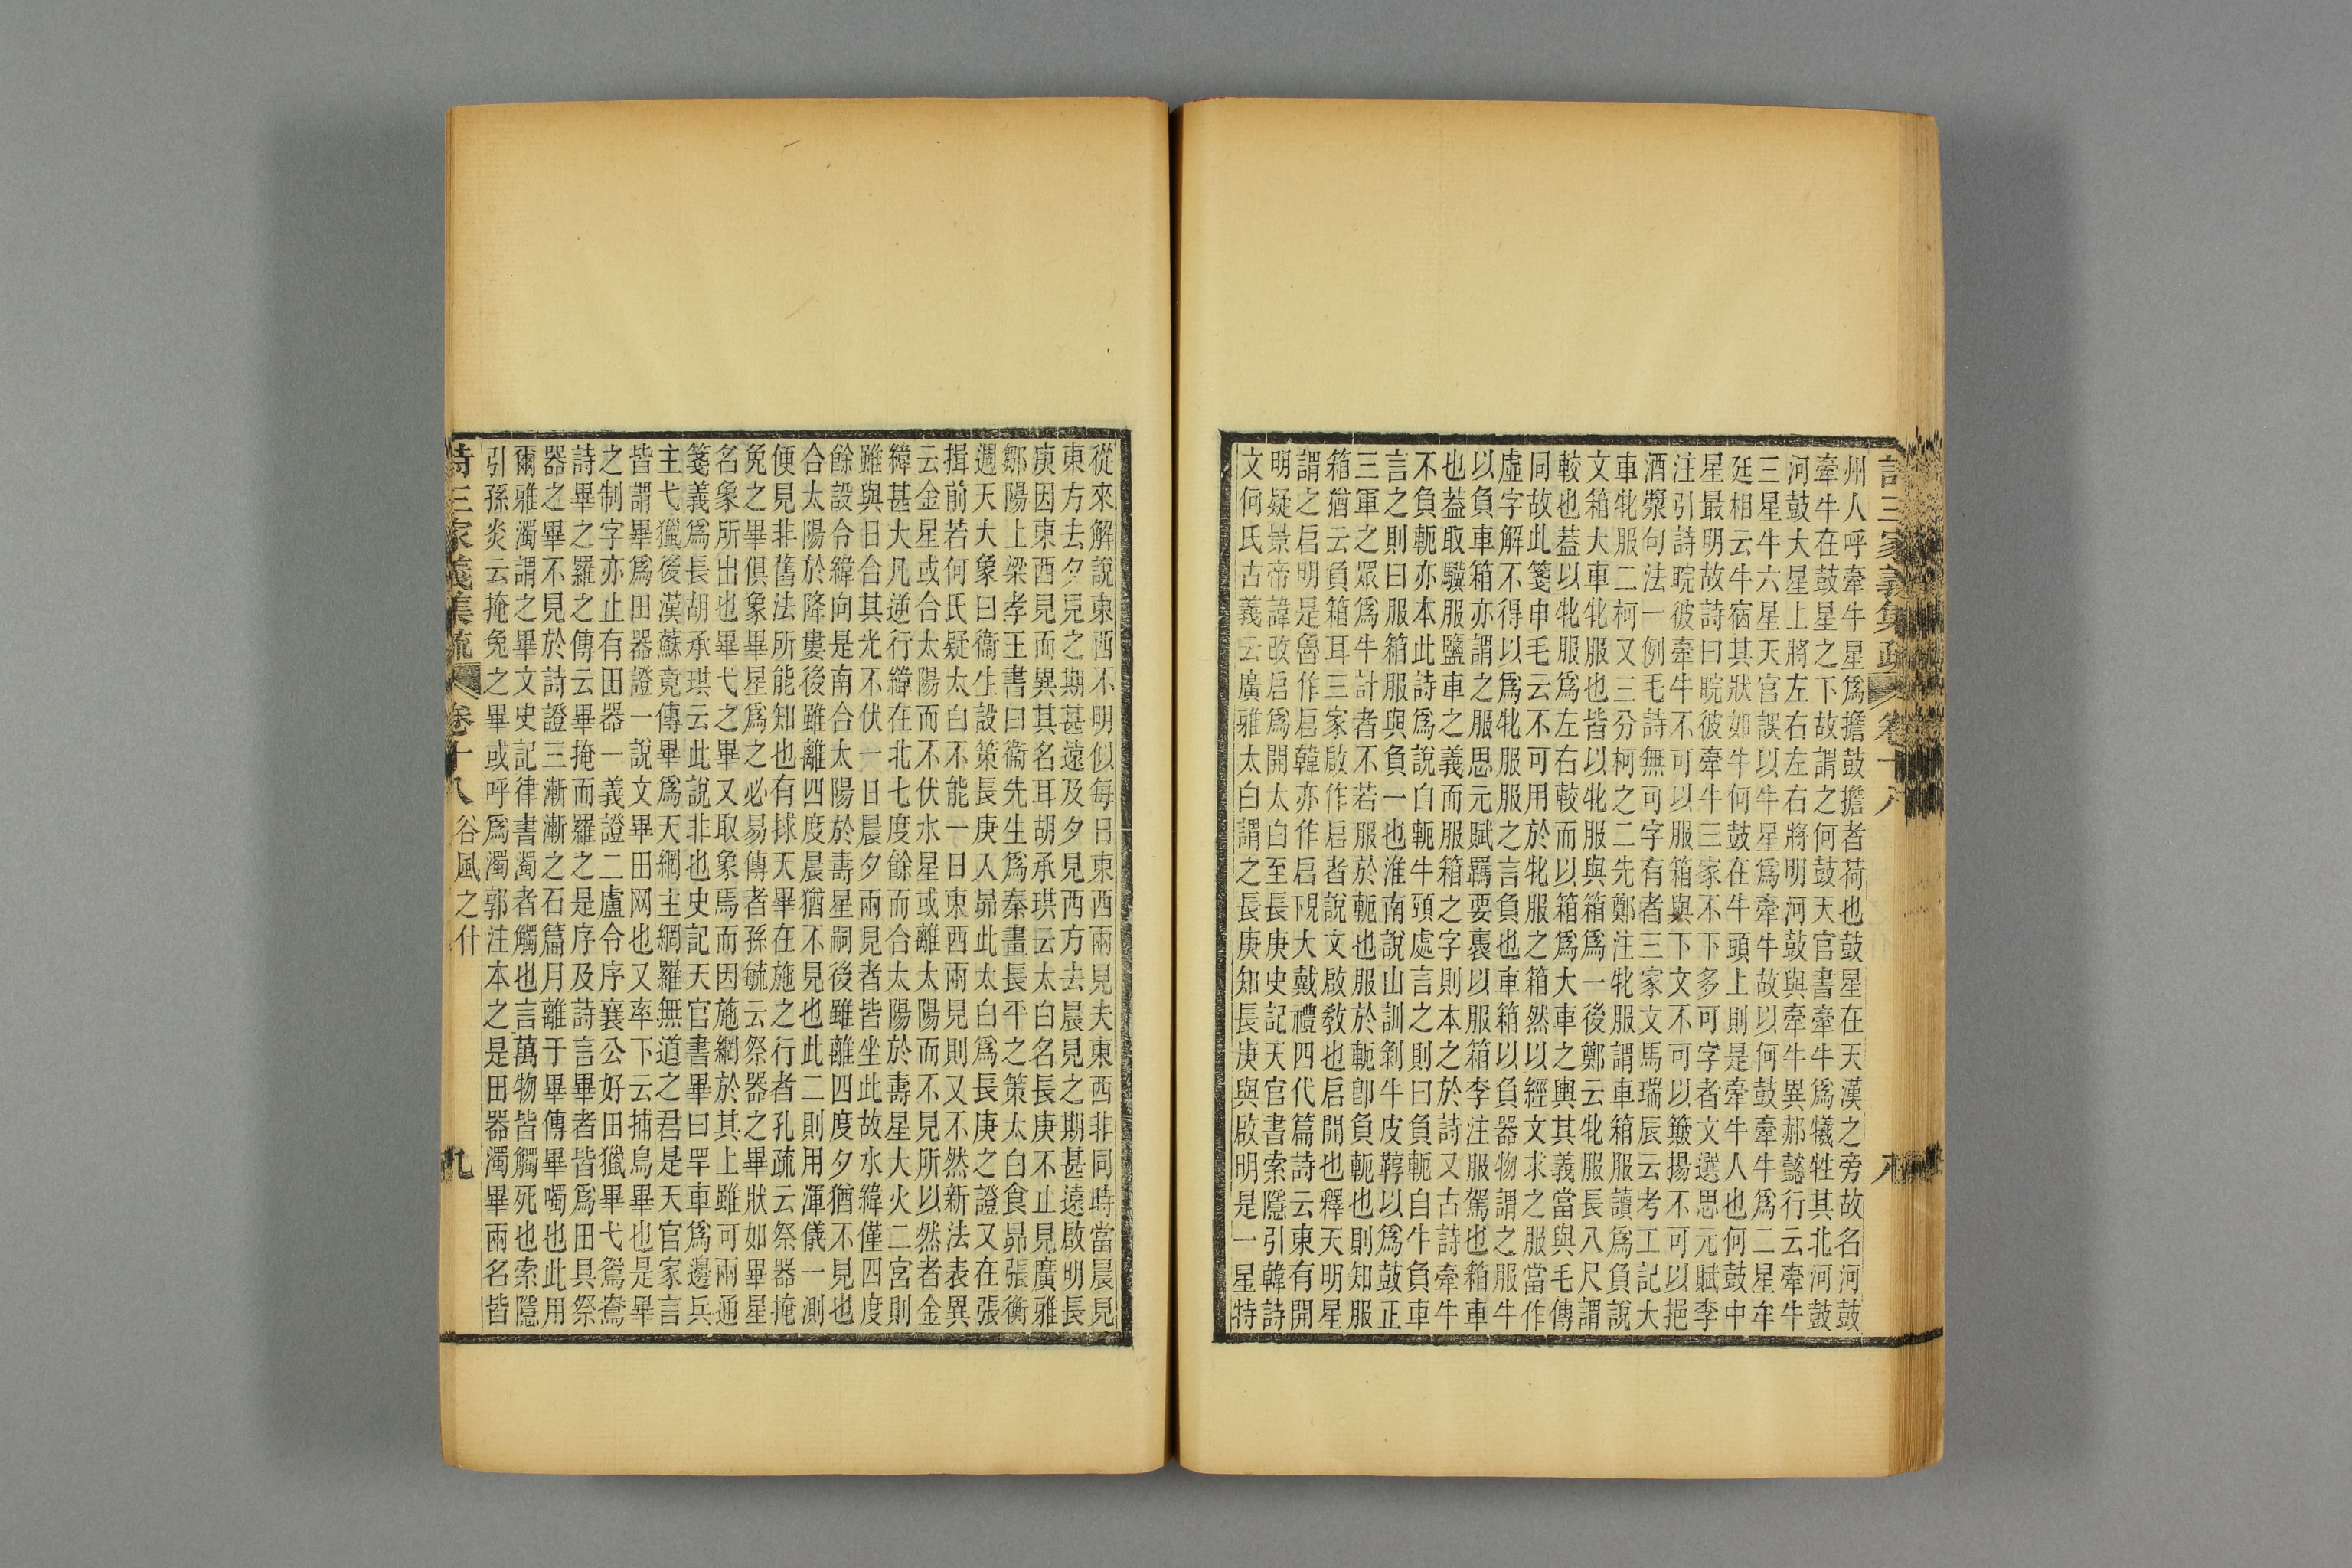 詩三家義集疏 卷十八 八
州人呼牽牛星爲擔鼓擔者荷也鼓星在天漢之旁故名河鼓
牽牛在鼓星之下故謂之何鼓天官書牽牛爲犧牲其北河鼓
河鼓大星上將左右左右將明河鼓與牽牛異郝懿行云牽牛
三星牛六星天官誤以牛星爲牽牛故以何鼓牽牛爲二星牟
廷相云牛宿其狀如牛何鼓在牛頭上則是牽牛人也何鼓中
星最明故詩曰睆彼牽牛三家不下多可字者文選思元賦李
注引詩睆彼牽牛不可以服箱與下文不可以簸揚不可以挹
酒漿句法一例毛詩無可字有者三家文馬瑞辰云考工記大
車牝服二柯又三分柯之二先鄭注牝服謂車箱服讀爲負說
文箱大車牝服也皆以牝服與箱爲一後鄭云牝服長八尺謂
較也蓋以牝服爲左右較而以箱爲大車之輿其義當與毛傳
同故此箋申毛云不可用於牝服之箱然以經文求之服當作
虛字解不得以爲牝服服之言負也車箱以負器物謂之服牛
以負車箱亦謂之服思元賦羈要裹以服箱李注服駕也箱車
也蓋取驥服鹽車之義而服箱之字則本之於詩又古詩牽牛
不負軛亦本此詩爲說白軛牛頸處言之則曰負軛自牛負車
言之則曰服箱服與負一也淮南說山訓剝牛皮鞟以爲鼓正
三軍之眾爲牛計者不若服於軛也服於軛卽負軛也則知服
箱猶云負箱耳三家啟作启者說文啟敎也启開也釋天明星
謂之启明是魯作启韓亦作启大戴禮四代篇詩云東有開
明疑景帝諱改启爲開太白至長庚史記天官書索隱引韓詩
文何氏古義云廣雅太白謂之長庚知長庚與啟明是一星特
從來解說東西不明似每日東西兩見夫東西非同時當晨見
東方去夕見之期甚遠及夕見西方去晨見之期甚遠啟明長
庚因東西見而異其名耳胡承珙云太白名長庚不止見廣雅
鄒陽上梁孝王書曰衞先生爲秦畫長平之策太白食昴張衡
週天大象曰衞生設策長庚入昴此太白爲長庚之證又在張
揖前若何氏疑太白不能一日東西兩見則又不然新法表異
云金星或合太陽而不伏水星或離太陽而不見所以然者金
緯甚大凡逆行緯在北七度餘而合太陽於壽星大火二宮則
雖與日合其光不伏一日晨夕兩見者皆坐此故水緯僅四度
餘設令緯向是南合太陽於壽星嗣後雖離四度夕猶不見也
合太陽於降婁後雖離四度晨猶不見也此二則用渾儀一測
便見非舊法所能知也有捄天畢在施之行者孔疏云祭器掩
免之畢俱象畢星爲之必易傳者孫毓云祭器之畢狀如畢星
名象所出也畢弋之畢又取象焉而因施網於其上雖可兩通
箋義爲長胡承珙云此說非也史記天官書畢曰罕車爲邊兵
主弋獵後漢蘇竟傳畢爲天網主網羅無道之君是天官家言
皆謂畢爲田器證一說文畢田网也又率下云捕鳥畢也是畢
之制字亦止有田器一義證二盧令序襄公好田獵畢弋鴛鴦
詩畢之羅之傳云畢掩而羅之是序及詩言畢者皆爲田具祭
器之畢不見於詩證三漸漸之石篇月離于畢傳畢噣也此用
爾雅濁謂之畢文史記律書濁者觸也言萬物皆觸死也索隱
引孫炎云掩兔之畢或呼爲濁郭注本之是田器濁畢雨名皆
詩三家義集疏 卷十八 谷風之什 九